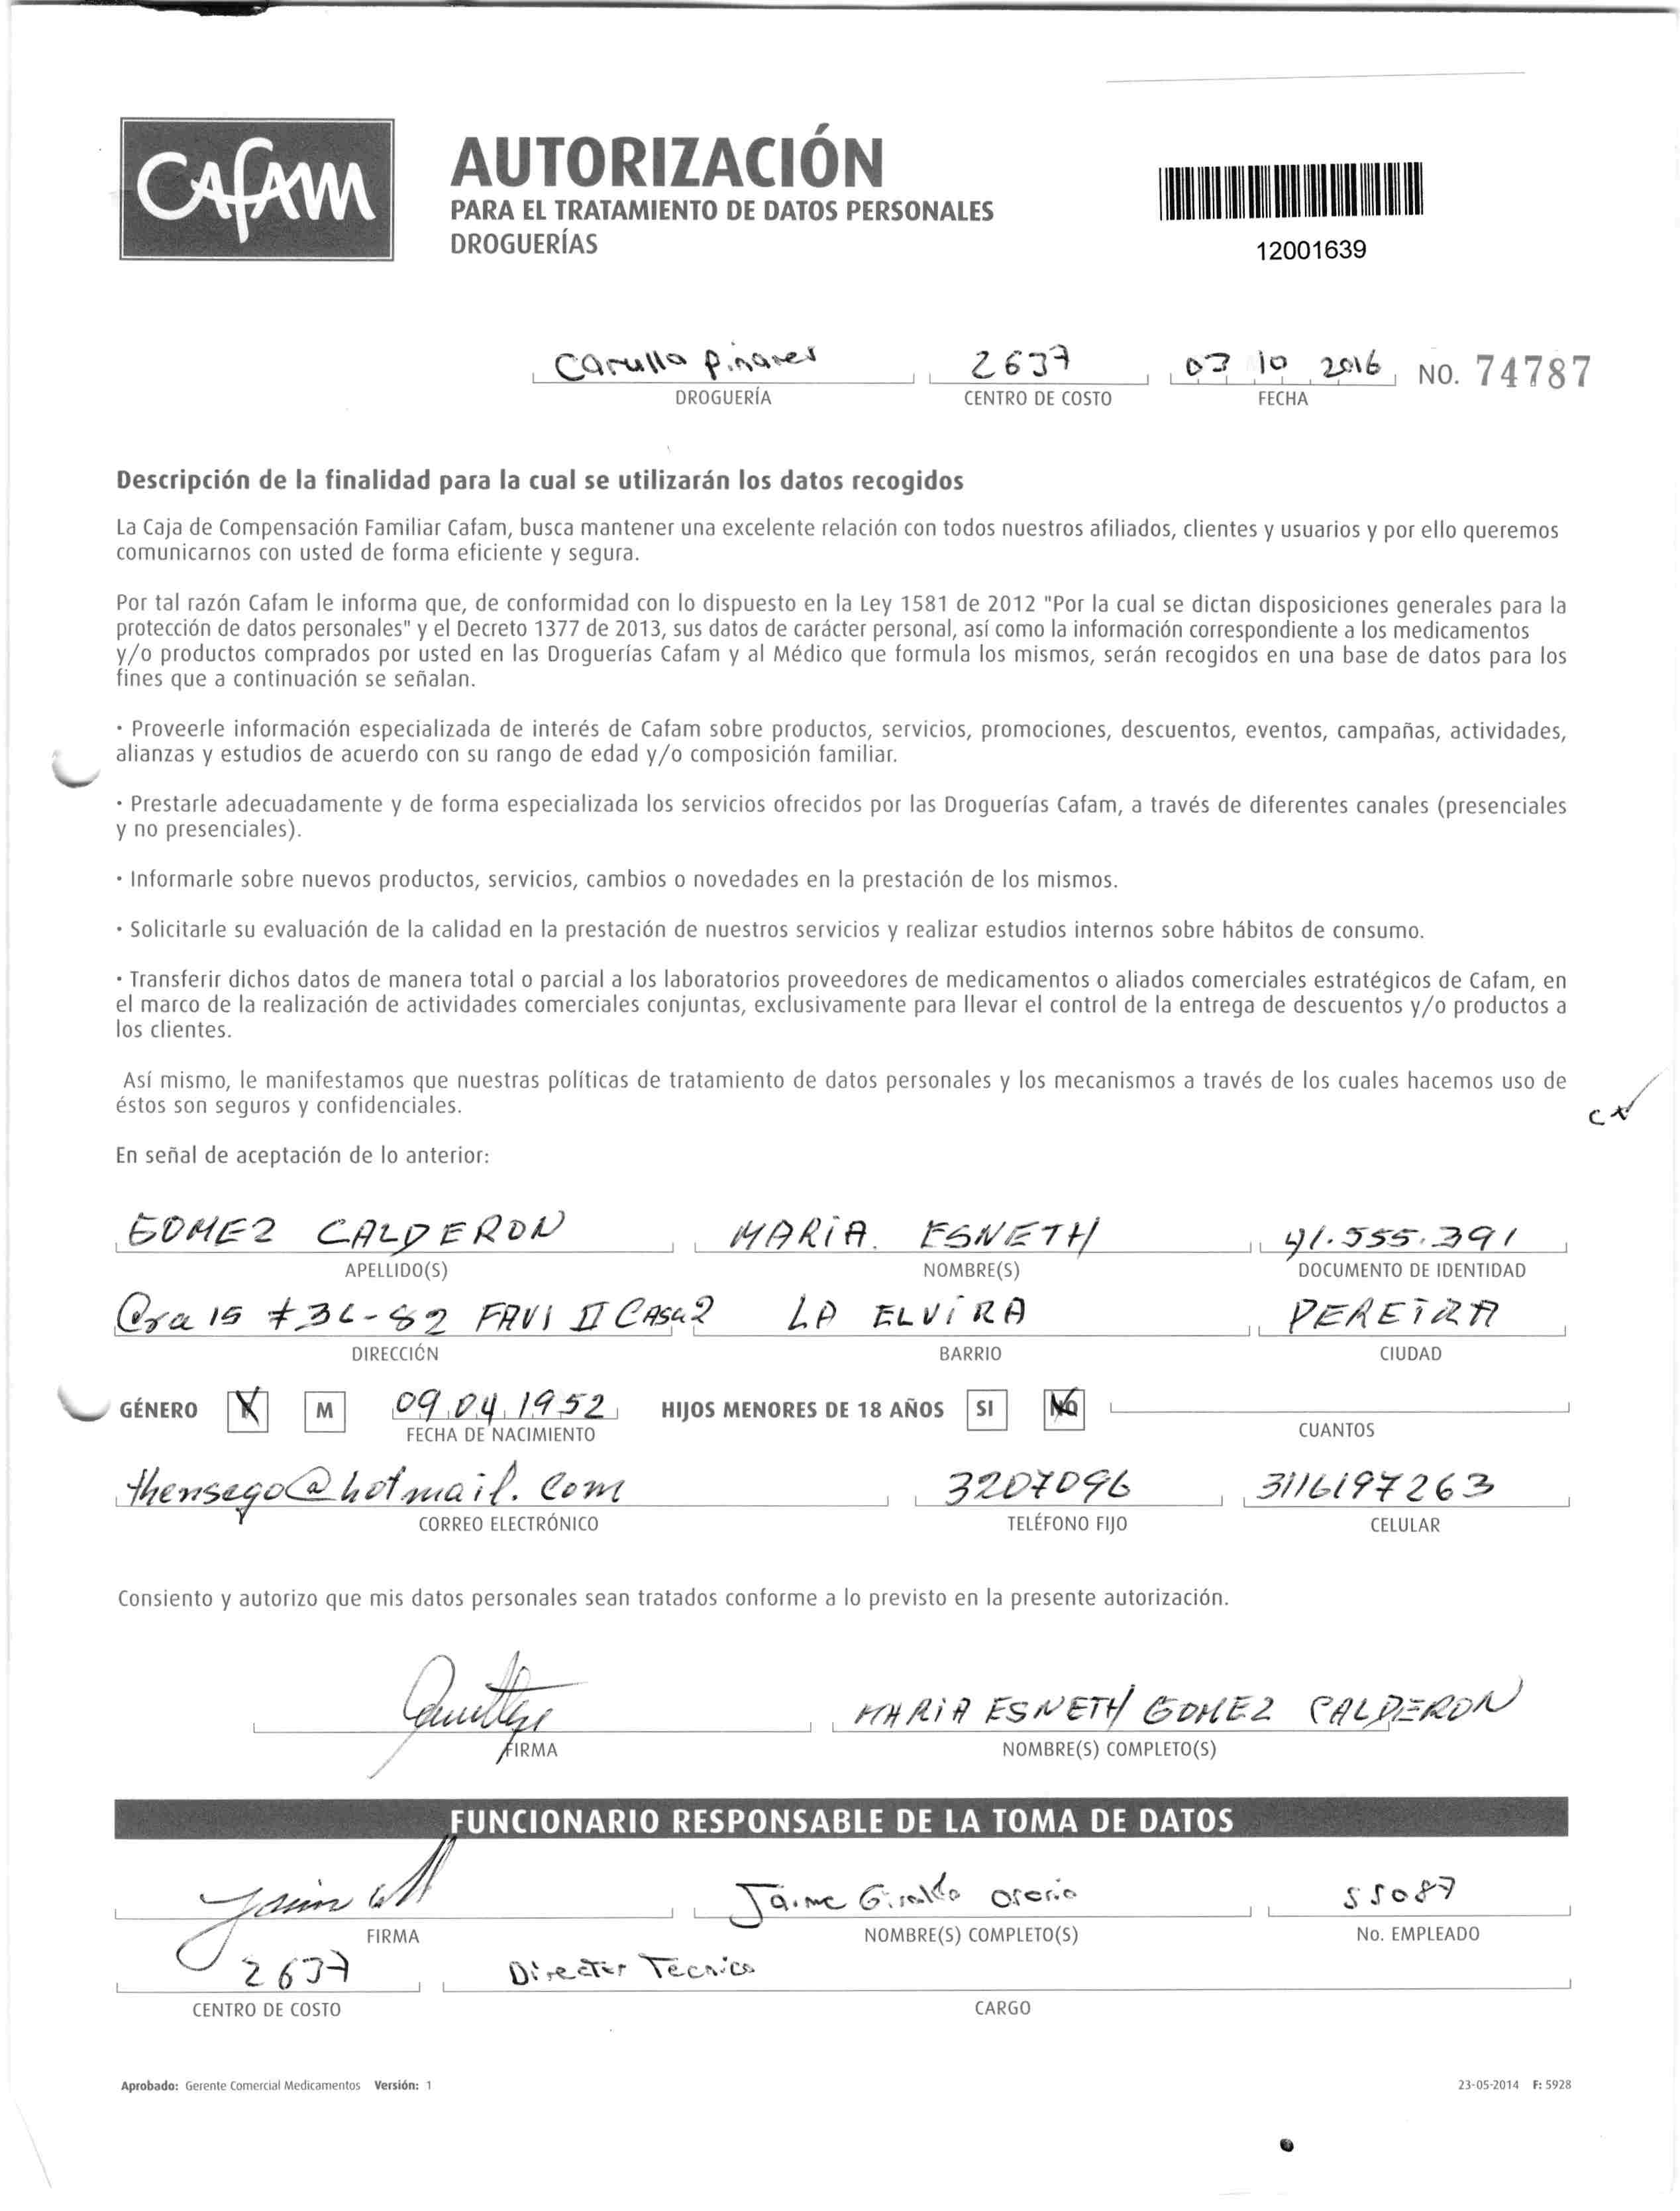 CAFAM
AUTORIZACIÓN
PARA EL TRATAMIENTO DE DATOS PERSONALES
DROGUERÍAS
12001639
Carulla Pinares 2637 03 10 2016 NO. 74787
DROGUERÍA CENTRO DE COSTO FECHA
Descripción de la finalidad para la cual se utilizarán los datos recogidos
La Caja de Compensación Familiar Cafam, busca mantener una excelente relación con todos nuestros afiliados, clientes y usuarios y por ello queremos
comunicarnos con usted de forma eficiente y segura.
Por tal razón Cafam le informa que, de conformidad con lo dispuesto en la Ley 1581 de 2012 "Por la cual se dictan disposiciones generales para la
protección de datos personales" y el Decreto 1377 de 2013, sus datos de carácter personal, así como la información correspondiente a los medicamentos
y/o productos comprados por usted en las Droguerías Cafam y al Médico que formula los mismos, serán recogidos en una base de datos para los
fines que a continuación se señalan.
· Proveerle información especializada de interés de Cafam sobre productos, servicios, promociones, descuentos, eventos, campañas, actividades,
alianzas y estudios de acuerdo con su rango de edad y/o composición familiar.
· Prestarle adecuadamente y de forma especializada los servicios ofrecidos por las Droguerías Cafam, a través de diferentes canales (presenciales
y no presenciales).
· Informarle sobre nuevos productos, servicios, cambios o novedades en la prestación de los mismos.
· Solicitarle su evaluación de la calidad en la prestación de nuestros servicios y realizar estudios internos sobre hábitos de consumo.
· Transferir dichos datos de manera total o parcial a los laboratorios proveedores de medicamentos o aliados comerciales estratégicos de Cafam, en
el marco de la realización de actividades comerciales conjuntas, exclusivamente para llevar el control de la entrega de descuentos y/o productos a
los clientes.
Así mismo, le manifestamos que nuestras políticas de tratamiento de datos personales y los mecanismos a través de los cuales hacemos uso de
éstos son seguros y confidenciales.
En señal de aceptación de lo anterior:
GOMEZ CALDERON MARIA ESNETH 41.555.391
APELLIDO(S) NOMBRE(S) DOCUMENTO DE IDENTIDAD
Cra 15 FAVI II CASA 2 LA ELVIRA PEREIRA
DIRECCIÓN BARRIO CIUDAD
GÉNERO X M 09 04 1952 HIJOS MENORES DE 18 AÑOS SI NO
FECHA DE NACIMIENTO CUANTOS
thensego@hotmail.com 3207096 3116197263
CORREO ELECTRÓNICO TELÉFONO FIJO CELULAR
Consiento y autorizo que mis datos personales sean tratados conforme a lo previsto en la presente autorización.
MARIA ESNETH GOMEZ CALDERON
FIRMA NOMBRE(S) COMPLETO(S)
FUNCIONARIO RESPONSABLE DE LA TOMA DE DATOS
Jaime Giraldo Osorio 55087
FIRMA NOMBRE(S) COMPLETO(S) No. EMPLEADO
2637 Director Tecnico
CENTRO DE COSTO CARGO
Aprobado: Gerente Comercial Medicamentos Versión: 1 23-05-2014 F: 5928